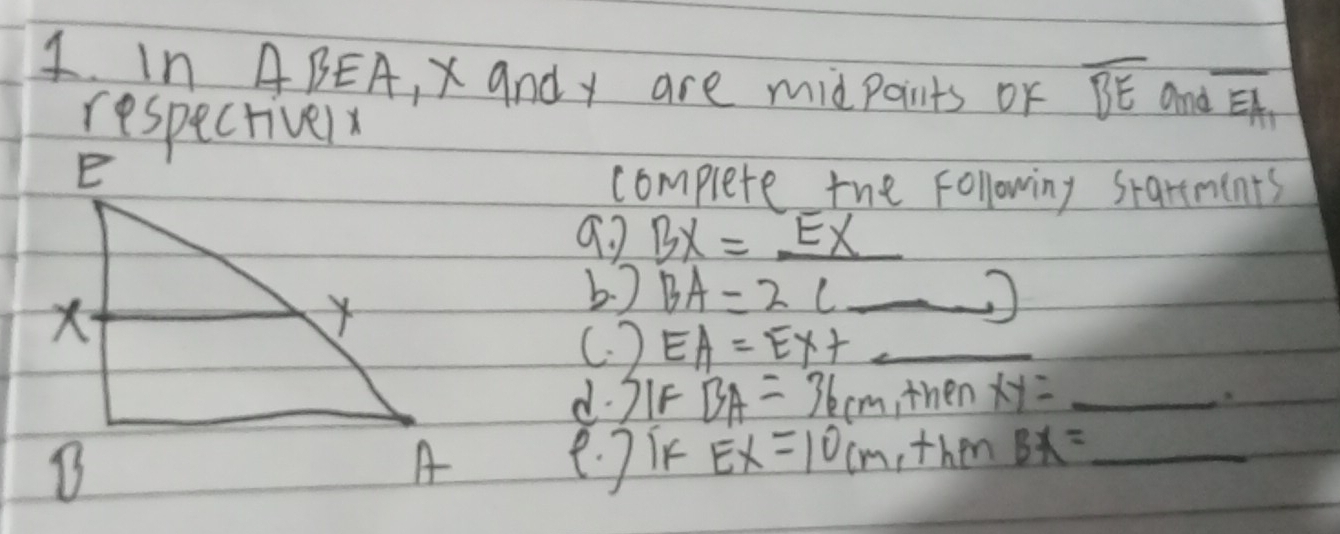 1. In ΔBEA, X and Y are midpoints of BE and EA,
respectively
E
complete the following statements
a.) BX = EX
b.) BA = 2 (______)
X Y
c.) EA = EY + ______
d.) If BA = 36cm, then XY = ______.
e.) If EX = 10cm, then BX = ______
B A